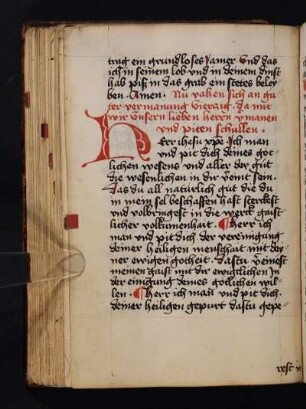 trag ein grundloses Jamer Und das
ich in seinem lob und in deinem dinst
hab piß in das grab ein stetes beley
ben. Amen. Nu vahen sich an gu
ter vermanung Vierzig. da mit
wir Unsern lieben herrn ymanen
und piten schullen.
Herr ihesu xpe. Ich man
und pit dich deines got
lichen wesens und aller der gut
die wesenlichen in dir Vont sein.
das du all naturlich gut die du
in mein sel beschaffen hast sterckest
und volbringest in die werck gaist
licher volkumenhait. Herr ich
man und pit dich der vereinigung
deiner heiligen menschait mit dei
ner ewigen gotheit. dastu Vereinest
meinen gaist mit dir ewigklichen In
der einigung deines gotlichen wil
len. Herr ich man und pit dich
deiner heiligen gepurt dastu gepe